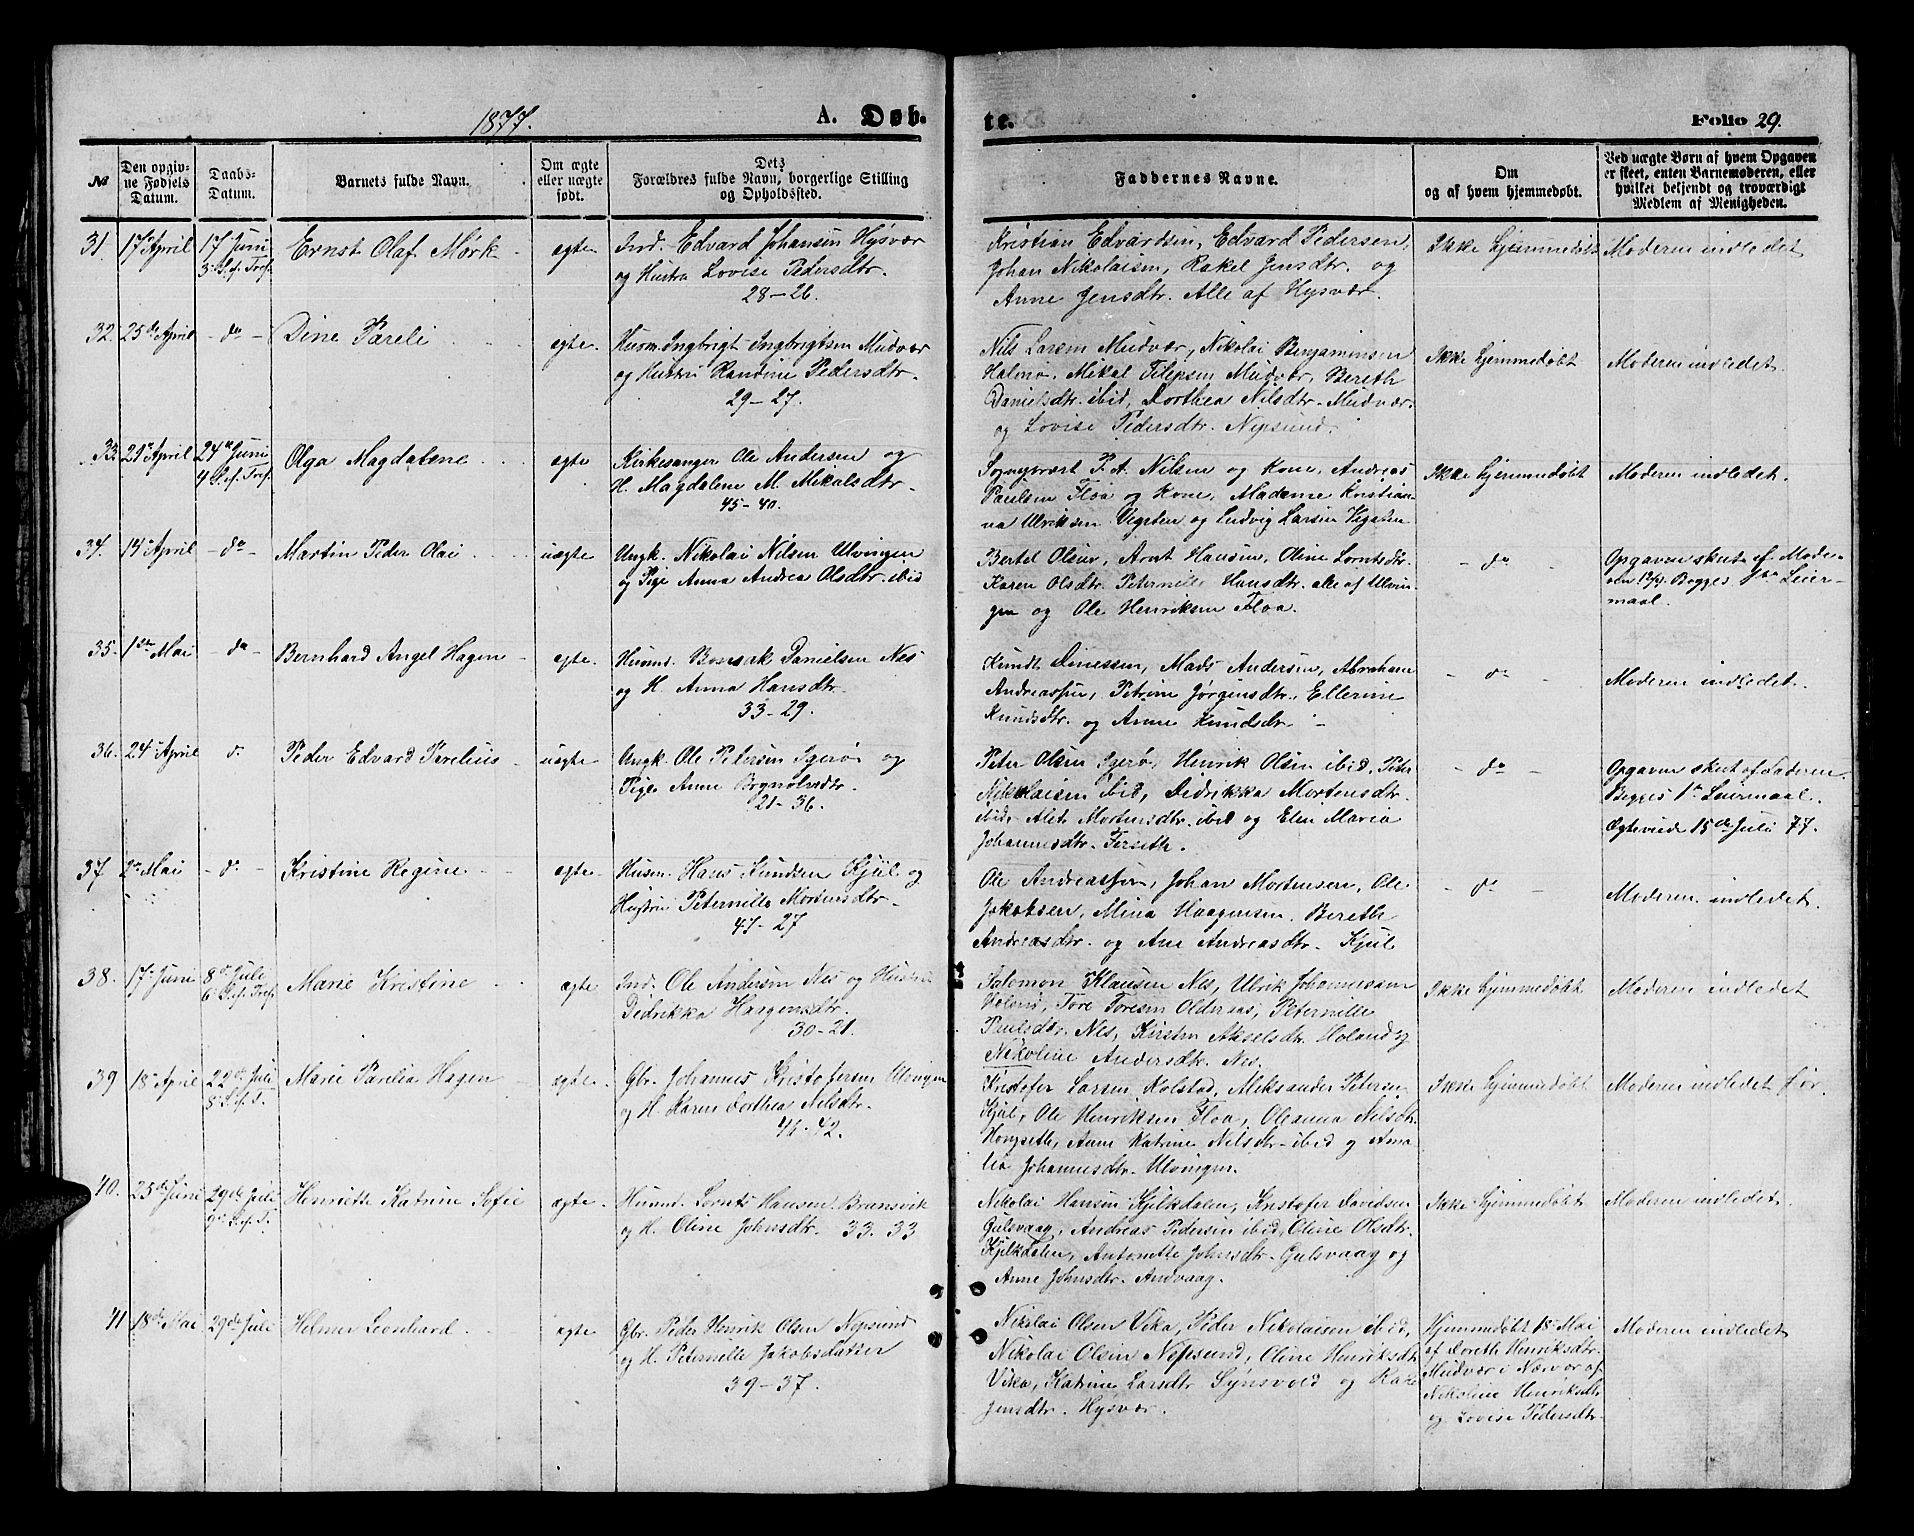 1877.
A. Døb.
te.
Folio 29.
No
Den opgiv-
ne Fødsels
Datum.
Daabs-
Datum.
Barnets fulde Navn.
Om ægte
eller uægte
født.
Dets
Forældres fulde Navn, borgerlige Stilling
og Opholdssted.
Faddernes Navne.
Om
og af hvem hjemmedøbt.
Ved uægte Børn af hvem Opgaven
er skeet, enten Barnemoderen, eller
hvilket bekjendt og troværdigt
Medlem af Menigheden.
31. 17 April
17 Juni
3 S. ef. Tref.
Ernst Olaf Mørk
egte
Ind. Edvard Johansen Hysvær
og Hustru Lovise Pedersdtr.
28-26.
Kristian Edvardsen, Edvard Pedersen,
Johan Nikolaisen, Rakel Jensdtr. og
Anne Jensdtr. Alle af Hysvær.
Ikke hjemmedøbt
Moderen indledet
32. 25de April
- do -
Dine Pareli
egte.
Husm. Ingbrigt Ingbrigtsen Mudvær
og Hustru Randine Pedersdtr.
29-27.
Nils Larsen Mudvær, Nikolai Benjaminsen
Halmø, Mikal Filipsen Mudvær, Bereth
Danielsdtr. ibid, Dorthea Nilsdtr. Mudvær
og Lovise Pedersdtr. Nepsund.
Ikke hjemmedøbt
Moderen indledet.
33. 21 April
24de Juni
4 S. ef. Tref.
Olga Magdalene
egte
Kirkesanger Ole Andersen og
H. Magdalene M. Mikalsdtr.
45-40.
Sognepræst P. A. Nilsen og Kone, Andreas
Paulsen Floa og Kone, Madame Kristian-
na Ulriksen Vegsten og Ludvig Larsen Vegsten
Ikke hjemmedøbt
Moderen indledet.
34. 14 April
- do -
Martin Peder Olai
uægte
Ungk. Nikolai Nilsen Ulvingen
og Pige Anna Andrea Olsdtr. ibid
Bertel Olsen, Arnt Hansen, Oline Lorntsdtr.
Karen Olsdtr. Peternille Hansdtr. alle af Ulvin-
gen og Ole Henriksen Floa.
- do -
Opgaven skeet af Mode-
ren Begges 1ste Leier-
maal.
35. 1ste Mai
- do -
Bernhard Angel Hagen
egte.
Husmd. Bonsak Danielsen Nes
og H. Anna Hansdtr.
33-29.
Knudt Dinessen, Mads Andersen, Abraham
Andreassen, Petrine Jørgensdtr. Ellerine
Knudsdtr. og Anne Knudsdtr.
- do -
Moderen indledet.
36. 24 April
do
Peder Edvard Parelius
uægte
Ungk. Ole Petersen Igerø og
Pige Anne Brynolvsdtr.
21-36.
Peter Olsen Igerø, Henrik Olsen ibid, Peter
Nikolaisen ibid, Didrikka Mortensdtr.
ibid, Alet Mortensdtr. ibid og Elen Maria
Johannesdtr. Forseth.
- do -
Opgaven skeet af Faderen.
Begges 1ste Leiermaal.
Egteviede 15de Juli 77.
37 2den Mai
- do -
Kristine Regine
egte
Husm. Hans Knudsen Kjül og
Hustru Peternille Mortensdtr.
47-27
Ole Andreassen, Johan Mortensen, Ole
Jakobsen, Mina Haagensen, Bereth
Andreasdtr. og Ane Andreasdtr. Kjül
- do -
Moderen indledet
38. 17 Juni
8de Juli
6 S. ef. Tref.
Marie Kristine
egte
Ind. Ole Andersen Nes og Hustru
Didrikka Haagensdtr.
30-21.
Salomon Klausen Nes, Ulrik Johannessen
Holand, Tore Toresen Olderaas, Peternille
Paulsdtr. Nes, Kirsten Akselsdtr. Holand og
Nikoline Andersdtr. Nes.
Ikke hjemmedøbt
Moderen indledet
39 18 April
22de Juli
8 S. ef. T.
Marie Parelia Hagen
egte
Gbr. Johannes Kristofersen Ulvingen
og H. Karen Dorthea Nilsdtr.
41-42.
Kristofer Larsen Kolstad, Aleksander Petersen
Kjül, Ole Henriksen Floa, Oleanna Nilsdtr.
Hongseth, Anne Katrine Nilsdtr. ibid og Ama-
lia Johannesdtr. Ulvingen.
Ikke hjemmedøbt
Moderen indledet før.
40. 25de Juni
29de Juli
9 S. ef. T.
Henriette Katrine Sofie
egte
Husmd. Lornts Hansen Bransvik
og H. Oline Johnsdtr. 33. 33
Nikolai Hansen Kjilkdalen, Kristofer Davidsen
Gulsvaag, Andreas Pedersen ibid, Oline Olsdtr.
Kjilkdalen, Antonette Johnsdtr. Gulsvaag og
Anne Johnsdtr. Andvaag.
Ikke hjemmedøbt
Moderen indledet
41 18de Mai
29de Juli
Helmer Leonhard
egte
Gbr. Peder Henrik Olsen Nepsund
og H. Peternille Jakobsdatter
39-37.
Nikolai Olsen Vika, Peder Nikolaisen ibid,
Nikolai Olsen Nepsund, Oline Henriksdtr
Vika, Katrine Larsdtr Synsvold og Rakel
Jensdtr. Hysvær.
Hjemmedøbt 18 Mai
af Dorette Henriksdtr.
Mudvær i Nærvær af
Nikoline Henriksdtr
og Lovise Pedersdtr.
Moderen indledet